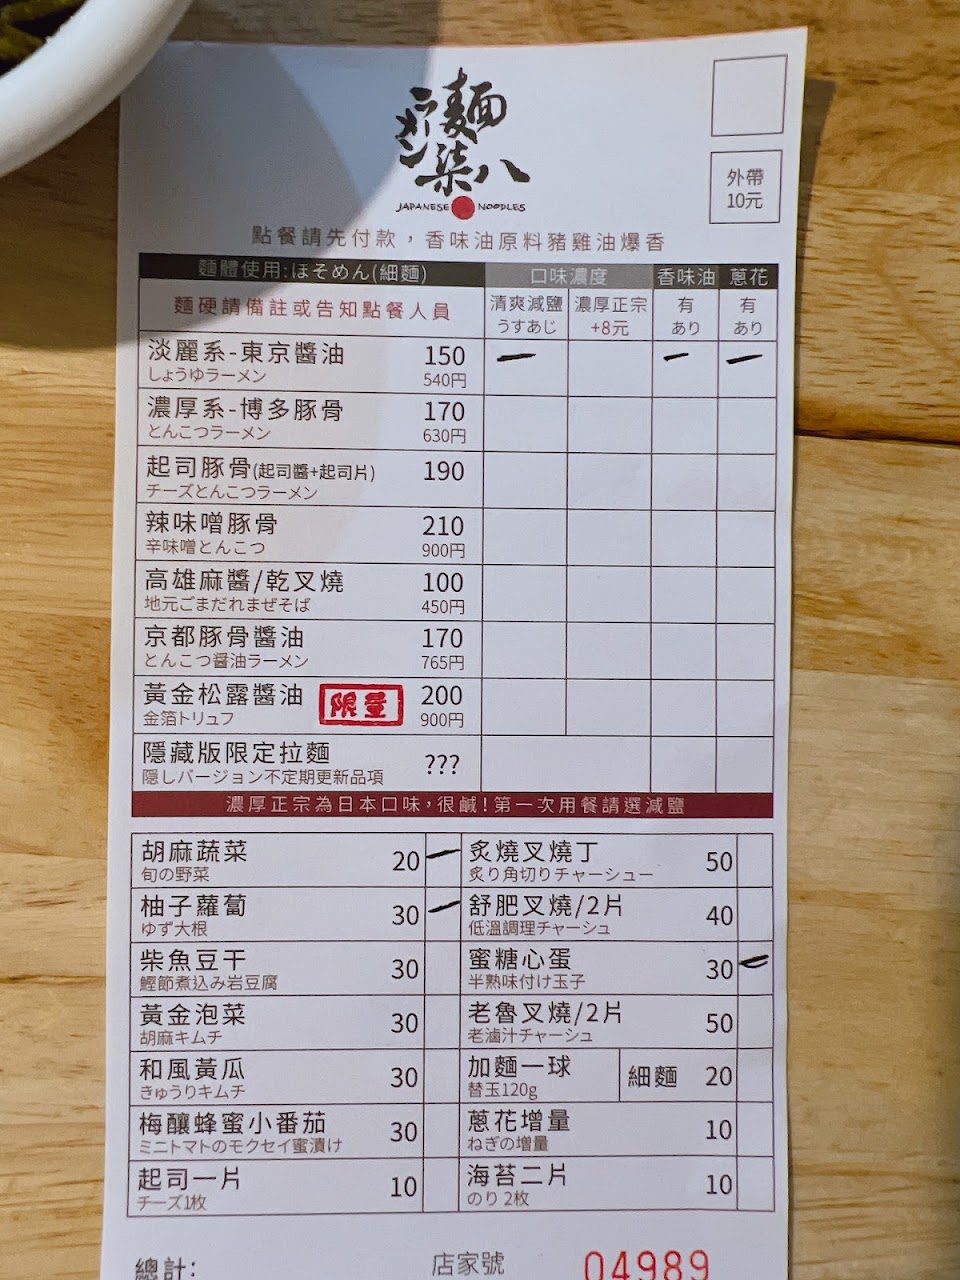 ラーメン
麵柒八
JAPANESE NOODLES
外帶
10元
點餐請先付款，香味油原料豬雞油爆香
麵體使用:ほそめん(細麵) 口味濃度 香味油 蔥花
麵硬請備註或告知點餐人員 清爽減鹽 濃厚正宗 有 有
うすあじ +8元 あり あり
淡麗系-東京醬油 150
しょうゆラーメン 540円
濃厚系-博多豚骨 170
とんこつラーメン 630円
起司豚骨(起司醬+起司片) 190
チーズとんこつラーメン
辣味噌豚骨 210
辛味噌とんこつ 900円
高雄麻醬/乾叉燒 100
地元ごまだれまぜそば 450円
京都豚骨醬油 170
とんこつ醤油ラーメン 765円
黃金松露醬油 限量 200
金箔トリュフ 900円
隱藏版限定拉麵 ???
隠しバージョン不定期更新品項
濃厚正宗為日本口味，很鹹!第一次用餐請選減鹽
胡麻蔬菜 20 炙燒叉燒丁 50
旬の野菜 炙り角切りチャーシュー
柚子蘿蔔 30 舒肥叉燒/2片 40
ゆず大根 低温調理チャーシュ
柴魚豆干 30 蜜糖心蛋 30
鰹節煮込み岩豆腐 半熟味付け玉子
黃金泡菜 30 老魯叉燒/2片 50
胡麻キムチ 老滷汁チャーシュ
和風黃瓜 30 加麵一球 細麵 20
きゅうりキムチ 替玉120g
梅釀蜂蜜小番茄 30 蔥花增量 10
ミニトマトのモクセイ蜜漬け ねぎの増量
起司一片 10 海苔二片 10
チーズ1枚 のり 2枚
總計: 店家號 04989